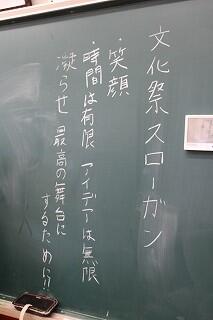 文化祭スローガン
・笑顔
・時間は有限 アイデアは無限
凝らせ 最高の舞台に
するために!!